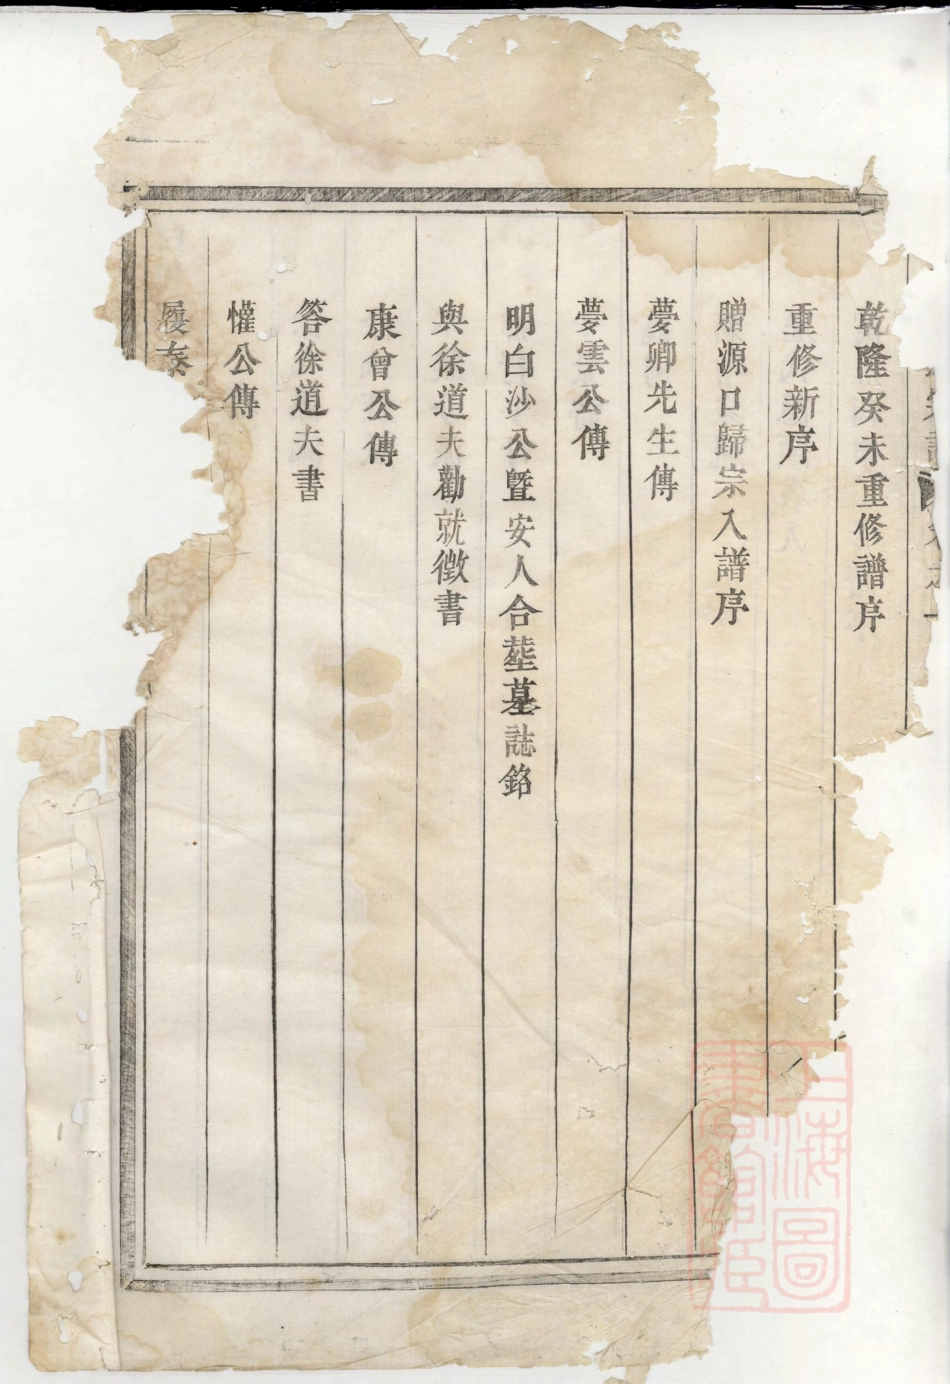 乾隆癸未重修譜序
重修新序
贈源口歸宗入譜序
夢卿先生傳
夢雲公傳
明白沙公曁安人合塟墓誌銘
與徐道夫勸就徵書
康曾公傳
答徐道夫書
懽公傳
履泰
上海圖書館藏